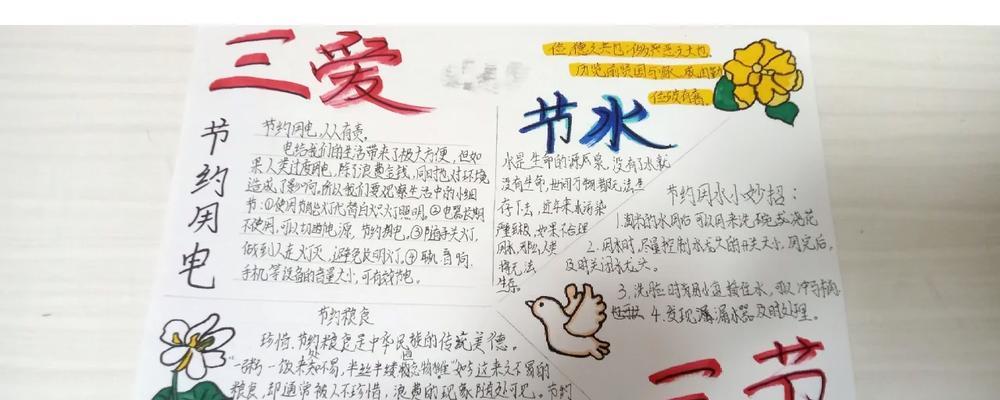 三爱
俭,德之共也;侈,恶之大也
历览前贤国与家,成由勤
俭破由奢。
节约用电
节约用电,人人有责。
电给我们的生活带来了极大方便,但如
果人类过度用电,除了浪费金钱,同时也对环境
造成了影响,所以我们要观察生活中的小细
节:①使用节能灯代替白炽灯照明。②电器长期
不使用,可以切断电源,节约用电。③随手关灯,
做到人走灯灭,避免长明灯。④ 音响
手机等设备的音量大小,可有效节电。
节水
水是生命的源泉,没有了水就
没有生命,世间万物都无法生
存下去,近年来水污染
严重,如果不合理
用水,那么人类
将无法
生存。
节约用水小妙招:
1.淘米的水用后可以用来洗碗或浇花
2.用水时,尽量控制水龙头的开关大小,用完后,
及时关闭水龙头。
3.洗脸时用盆接住水,可以冲马桶
4.发现漏水器及时处理。
节约粮食
珍惜、节约粮食是中华民族的传统美德。
"一粥一饭当思来之不易,半丝半缕恒念物力维艰"如今这来之不易的
粮食,却通常被人不珍惜,浪费的现象随处可见。节约
三节